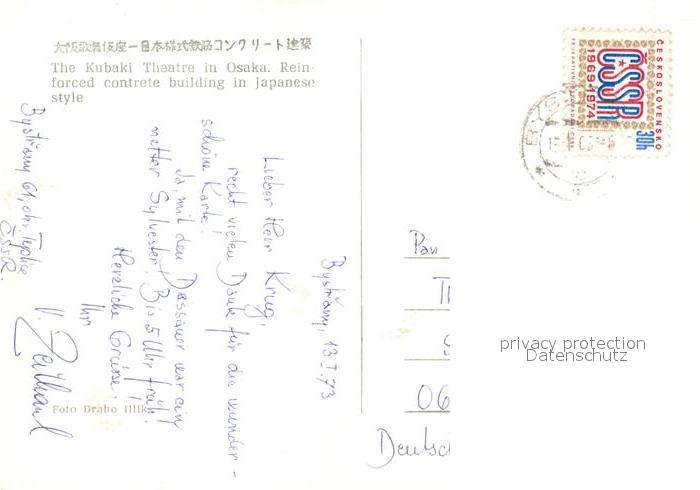 大阪歌舞伎座一日本様式鉄筋コンクリート建築
The Kubaki Theatre in Osaka. Rein-
forced contrete building in Japanese
style
Bystřany, 13.I.73
Lieber Herr Krug,
recht vielen Dank für die wunder-
schöne Karte!
Ja, mit den Dessauer war ein
netter Sylvester! Bis 5 Uhr früh!
Herzliche Grüsse!
Ihr
V.
Bystřany 61, okr. Teplice
ČSSR.
Foto Draho Illík
ČESKOSLOVENSKO
ČSSR
1969-1974
30h
Pan
06
Deutsc
privacy protection
Datenschutz